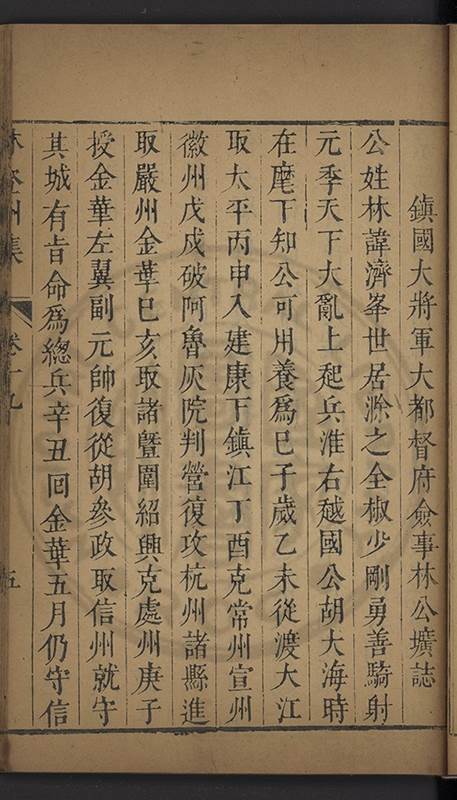 鎮國大將軍大都督府僉事林公壙誌
公姓林諱濟峯世居滁之全椒少剛勇善騎射
元季天下大亂上起兵淮右越國公胡大海時
在麾下知公可用養爲己子歲乙未從渡大江
取太平丙申入建康下鎮江丁酉克常州宣州
徽州戊戌破阿魯灰院判營復攻杭州諸縣進
取嚴州金華己亥取諸曁圍紹興克處州庚子
授金華左翼副元帥復從胡參政取信州就守
其城有旨命爲總兵辛丑回金華五月仍守信
林登州集 卷十九 五